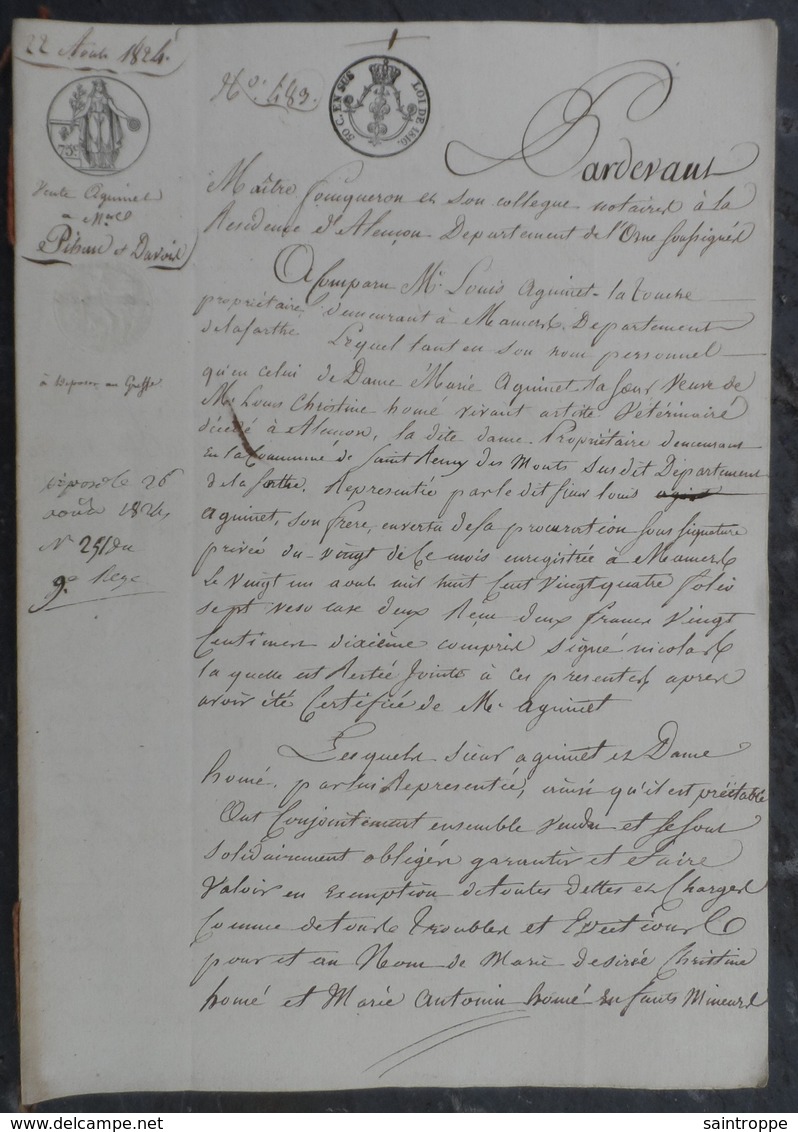 22 Aout 1824
75c
Vente Aguinet
a Mrs
Pihan et Davoit
à Déposer au Greffe
déposé le 26
août 1824
No 251 du
9e Reg
No. 483.
50 C. EN SUS LOI DE 1816.
Pardevant
Maître fouqueron et son collegue notaires à la
Residence d'Alençon Departement de l'Orne soussignés
A Comparu Mr Louis Aguinet-latouche
propriétaire, demeurant à Mamers, Departement
de la Sarthe. Lequel tant en son nom personnel
qu'en celui de Dame Marie Aguinet sa sœur Veuve de
Mr Louis Christine homé vivant artiste Vétérinaire
décédé à Alençon, la dite dame Propriétaire demeurant
en la Commune de Saint Remy des Monts susdit Département
de la Sarthe. Representée par le dit sieur louis
aguinet, son frere, en vertu de sa procuration sous signature
privée du vingt de ce mois enregistrée à Mamers
le vingt un aout mil huit cent vingt quatre folio
sept verso case deux Reçu deux francs vingt
Centimes dixième compris signé nicolas
laquelle est Restée Jointe à ces presentes apres
avoir été Certifiée de Mr aguinet
Lesquels sieur aguinet et Dame
homé, par lui Representée, ainsi qu'il est préétable
Ont Conjointement ensemble vendu et se sont
solidairement obligés garantir et faire
Valoir en exemption de toutes dettes et Charges
Comme de tous troubles et Evictions
pour et au Nom de Marie desirée Christine
homé et Marie Antonin homé Enfants Mineurs
www.delcampe.net
saintroppe